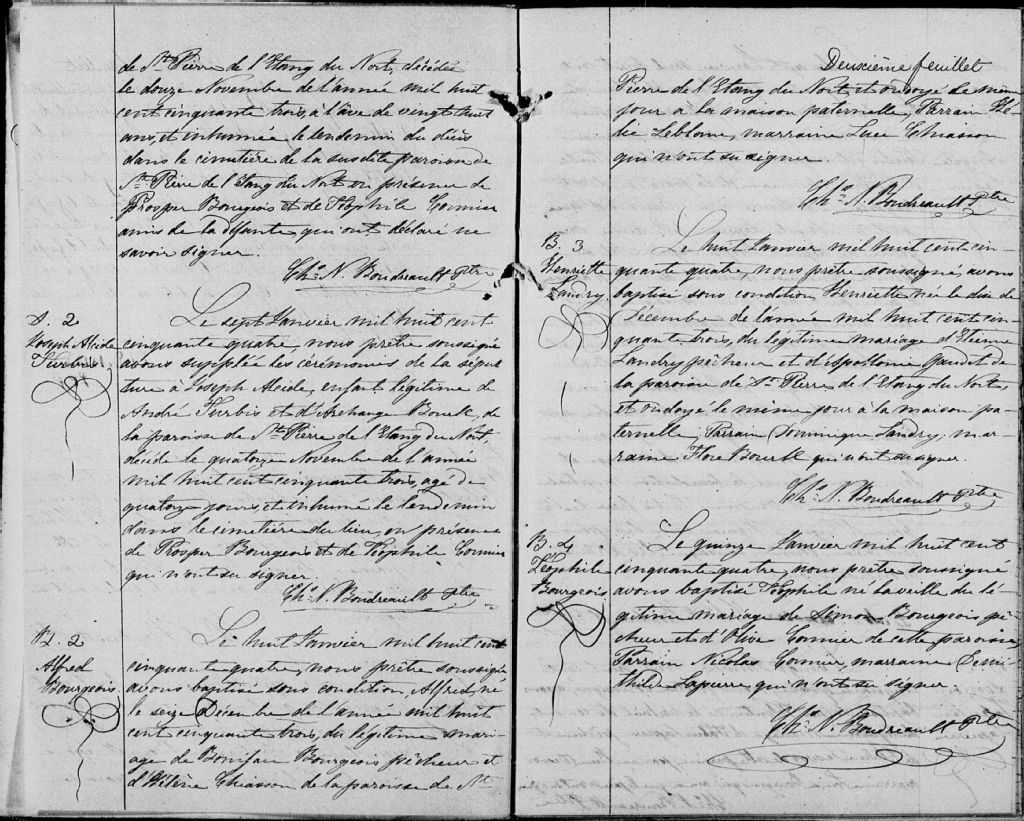 de Ste Pierre de l'Etang du Nort, décédée
le douze Novembre de l'année mil huit
cent cinquante trois, à l'âge de vingt huit
ans, et inhumée le lendemin du décès
dans le cimetière de la susdite paroisse de
Ste Pierre de l'étang du Nort en présence de
Prosper Bourgeois et de Téophile Cormier
amis de la Défunte, qui ont déclaré ne
savoir signer.
Chs N. Boudreault Ptre
S. 2
Joseph Alcide
Turbis
Le sept Janvier mil huit cent
cinquante quatre, nous prêtre soussigné
avons supplée les cérémonies de la sépul
ture à Joseph Alcide, enfant légitime de
André Turbis et d'Archange Bourk, de
la paroisse de Ste Pierre de l'Etang du Nort,
décédé le quatorze Novembre de l'année
mil huit cent cinquante trois, agé de
quatorze jours, et inhumé le lendemin
dans le cimetière du lieu, en présence
de Prosper Bourgeois et de Téophile Cormier
qui n'ont su signer
Chs N. Boudreault Ptre
B. 2
Alfred
Bourgeois.
Le huit Janvier mil huit cent
cinquante quatre, nous prêtre soussigné
avons baptisé sous condition, Alfred, né
le seize Décembre de l'année mil huit
cent cinquante trois, du légitime mari-
age de Boniface Bourgeois pêcheur et
d'Hélène Chiasson de la paroisse de St
Deuxième feuillet
Pierre de l'Etang du Nort, et ondoyé le même
jour a la maison paternelle, Parrain Eli
Leblanc, marraine Luce Chiasson
qui n'ont su signer.
Chs N. Boudreault Ptre
B. 3
Henriette
Landry
Le huit Janvier mil huit cent cin-
quante quatre, nous prêtre soussigné, avons
baptisé sous condition, Henriette née le dix de
Décembre de l'année mil huit cent cin-
quante trois, du légitime mariage d'Etienne
Landry pêcheur et d'Appolonie Gaudet de
la paroisse de St Pierre de l'Etang du Nort,
et ondoyé le même jour à la maison pa-
ternelle, Parrain Dominique Landry, mar-
raine Flore Bourk qui n'ont su signer.
Chs N. Boudreault Ptre
B. 4
Téophile
Bourgeois
Le quinze Janvier mil huit cent
cinquante quatre, nous prêtre soussigné
avons baptisé Téophile né la veille du lé-
gitime mariage de Simon Bourgeois pê-
cheur et d'Olive Cormier de cette paroisse,
Parrain Nicolas Cormier, marraine
Lapierre qui n'ont su signer
Chs N. Boudreault Ptre